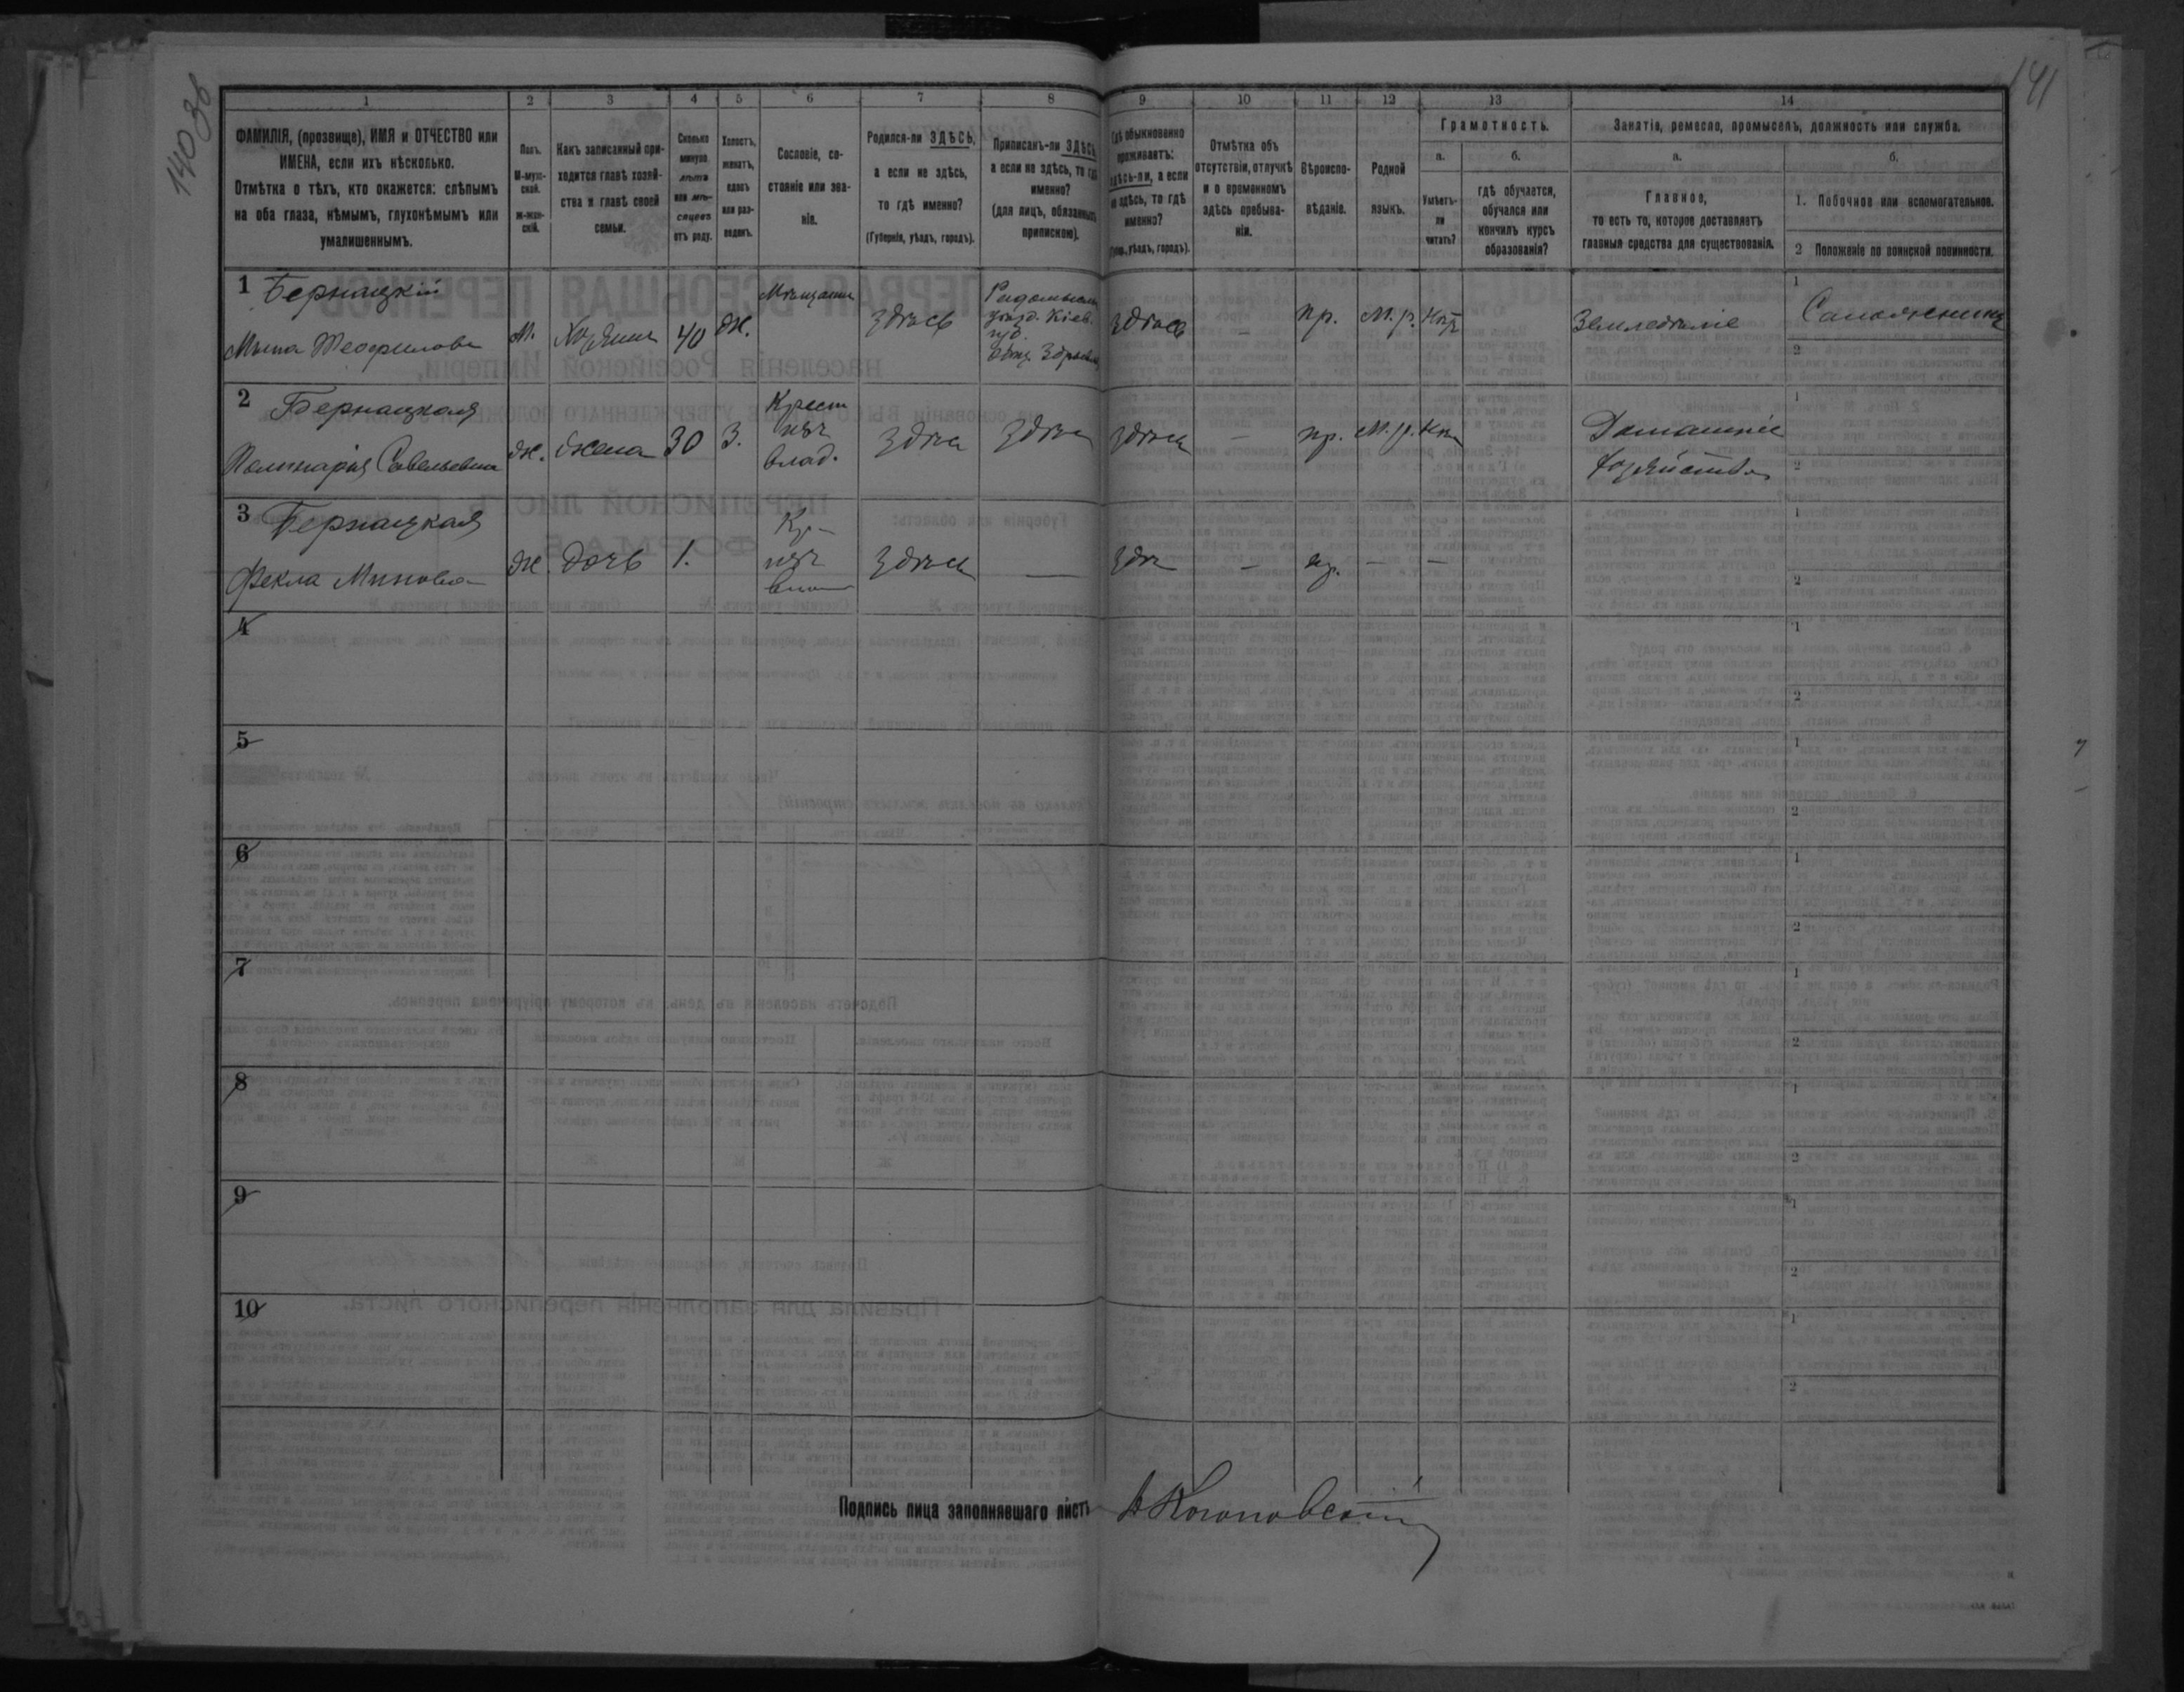 140 об
141
1
2
3
4
5
6
7
8
9
10
11
12
13
14
ФАМИЛІЯ, (прозвище), ИМЯ и ОТЧЕСТВО или
ИМЕНА, если ихъ нѣсколько.
Отмѣтка о тѣхъ, кто окажется: слѣпымъ
на оба глаза, нѣмымъ, глухонѣмымъ или
умалишеннымъ.
Полъ.
М-муж-
ской.
ж-жен-
скій.
Какъ записанный при-
ходится главѣ хозяй-
ства и главѣ своей
семьи.
Сколько
минуло
лѣтъ
или мѣ-
сяцевъ
отъ роду.
Холостъ,
женатъ,
вдовъ
или раз-
веденъ.
Сословіе, со-
стояніе или зва-
ніе.
Родился-ли ЗДѢСЬ,
а если не здѣсь,
то гдѣ именно?
(Губернія, уѣздъ, городъ).
Приписанъ-ли ЗДѢСЬ,
а если не здѣсь, то гдѣ
именно?
(для лицъ, обязанныхъ
припискою).
Гдѣ обыкновенно
проживаетъ:
здѣсь-ли, а если
не здѣсь, то гдѣ
именно?
(Губ., уѣздъ, городъ).
Отмѣтка объ
отсутствіи, отлучкѣ
и о временномъ
здѣсь пребыва-
ніи.
Вѣроиспо-
вѣданіе.
Родной
языкъ.
Грамотность.
а.
Умѣетъ-
ли
читать?
б.
гдѣ обучается,
обучался или
кончилъ курсъ
образованія?
Занятія, ремесло, промыселъ, должность или служба.
а.
Главное,
то есть то, которое доставляетъ
главныя средства для существованія.
б.
1. Побочное или вспомогательное.
2 Положеніе по воинской повинности.
1 Бернацкій
Мина Теофилов
М.
Хозяинъ
40
ж.
Мѣщанин
здѣсь
Радомысль
уѣзд. Кіев.
губ.
здѣсь
-
пр.
м.р.
Земледѣліе
1
2
2 Бернацкая
Савельевна
ж.
жена
30
З.
Крест
изъ
влад.
здѣсь
здѣсь
здѣсь
-
пр.
м.р.
Домашнее
хозяйство
1
2
3 Бернацкая
Фекла Минова
ж.
дочь
1.
Кр-
изъ
здѣсь
—
здѣ
-
пр.
-
-
1
2
4
1
2
5
1
2
6
1
2
7
1
2
8
1
2
9
1
2
10
1
2
Подпись лица заполнявшаго листъ